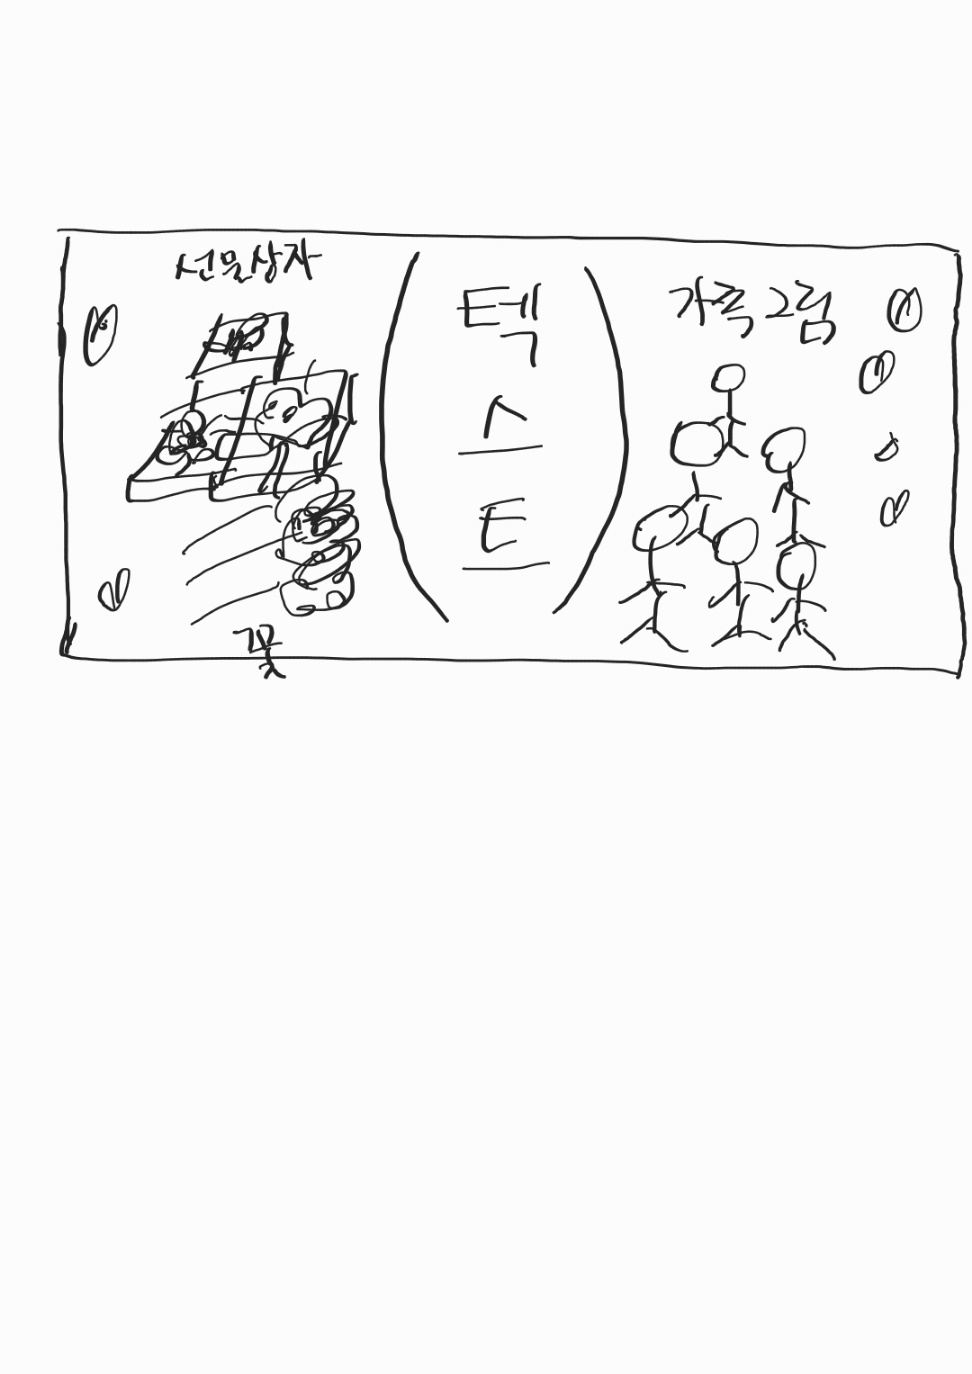 선물상자
꽃
텍
스
트
가족그림